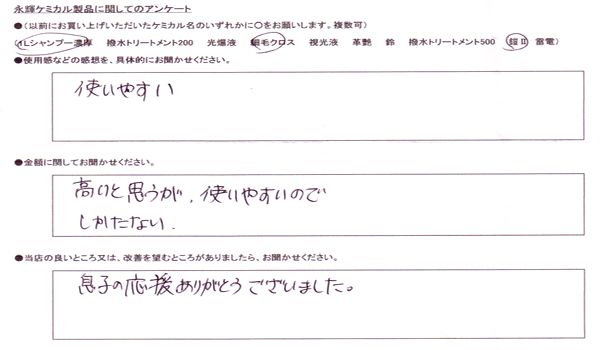 永輝ケミカル製品に関してのアンケート
●（以前にお買い上げいただいたケミカル名のいずれかに〇をお願いします。複数可）
（1Lシャンプー濃厚　撥水トリートメント200　光爆液　細毛クロス　視光液　革艶　鈴　撥水トリートメント500　鎧Ⅱ　雷電）
●使用感などの感想を、具体的にお聞かせください。
使いやすい
●金額に関してお聞かせください。
高いと思うが、使いやすいので
しかたない．
●当店の良いところ又は、改善を望むところがありましたら、お聞かせください。
息子の応援ありがとうございました。